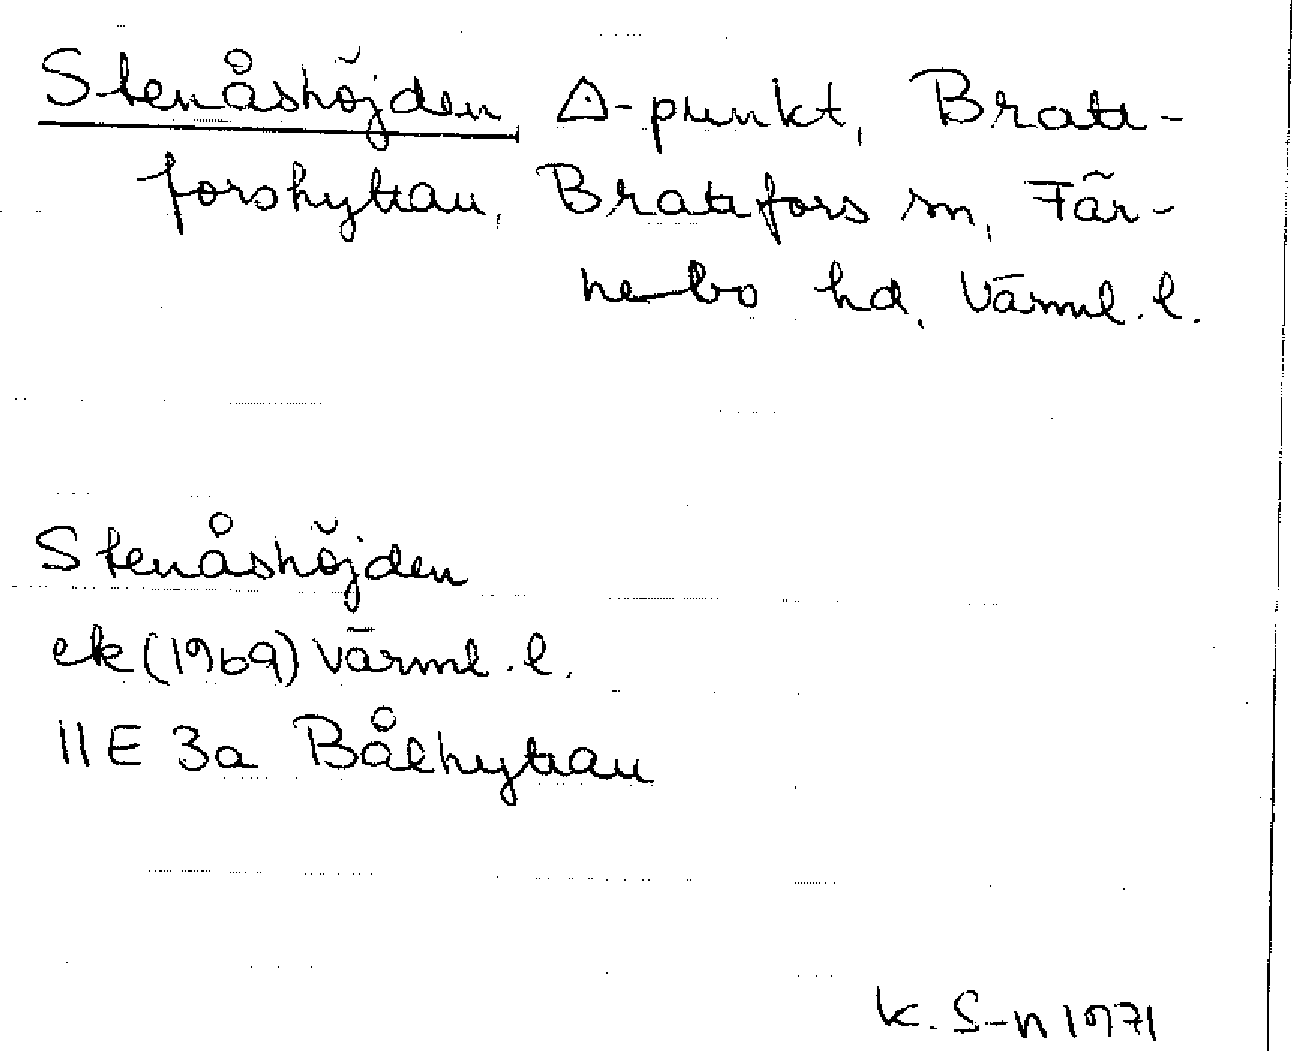 Stenåshöjden △-punkt, Bratt-
forshyttan, Brattfors sn, Fär-
nebo hd, Värml. l.
Stenåshöjden
ek (1969) Värml. l.
11E 3a Bålhyttan
K. S-n 1971